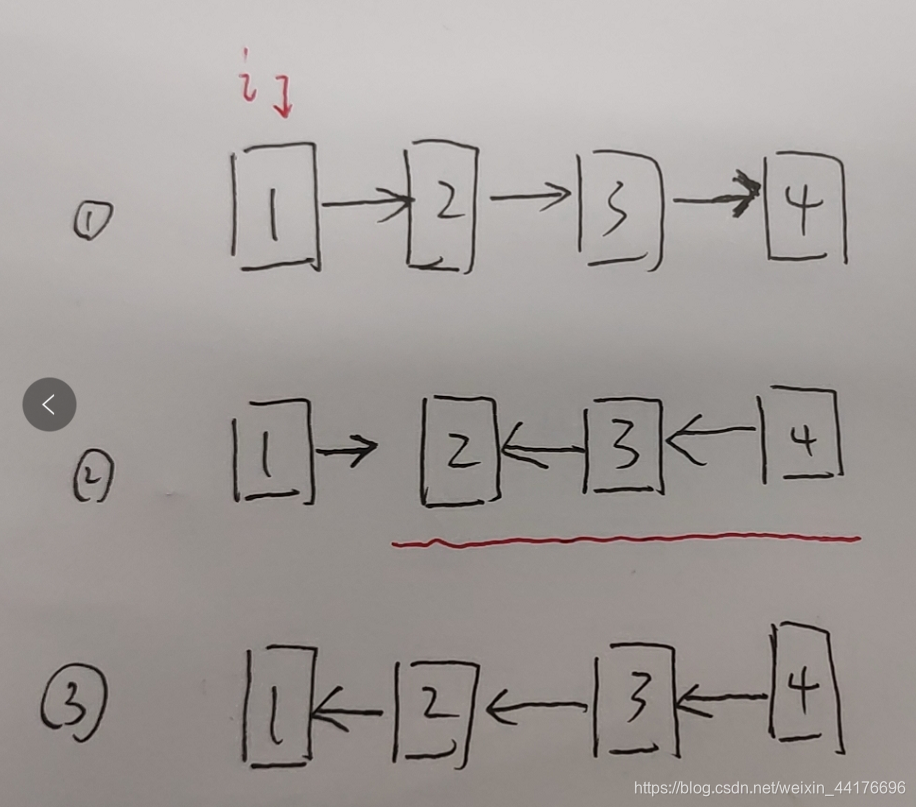 i j
① 1 2 3 4
② 1 2 3 4
③ 1 2 3 4
https://blog.csdn.net/weixin_44176696